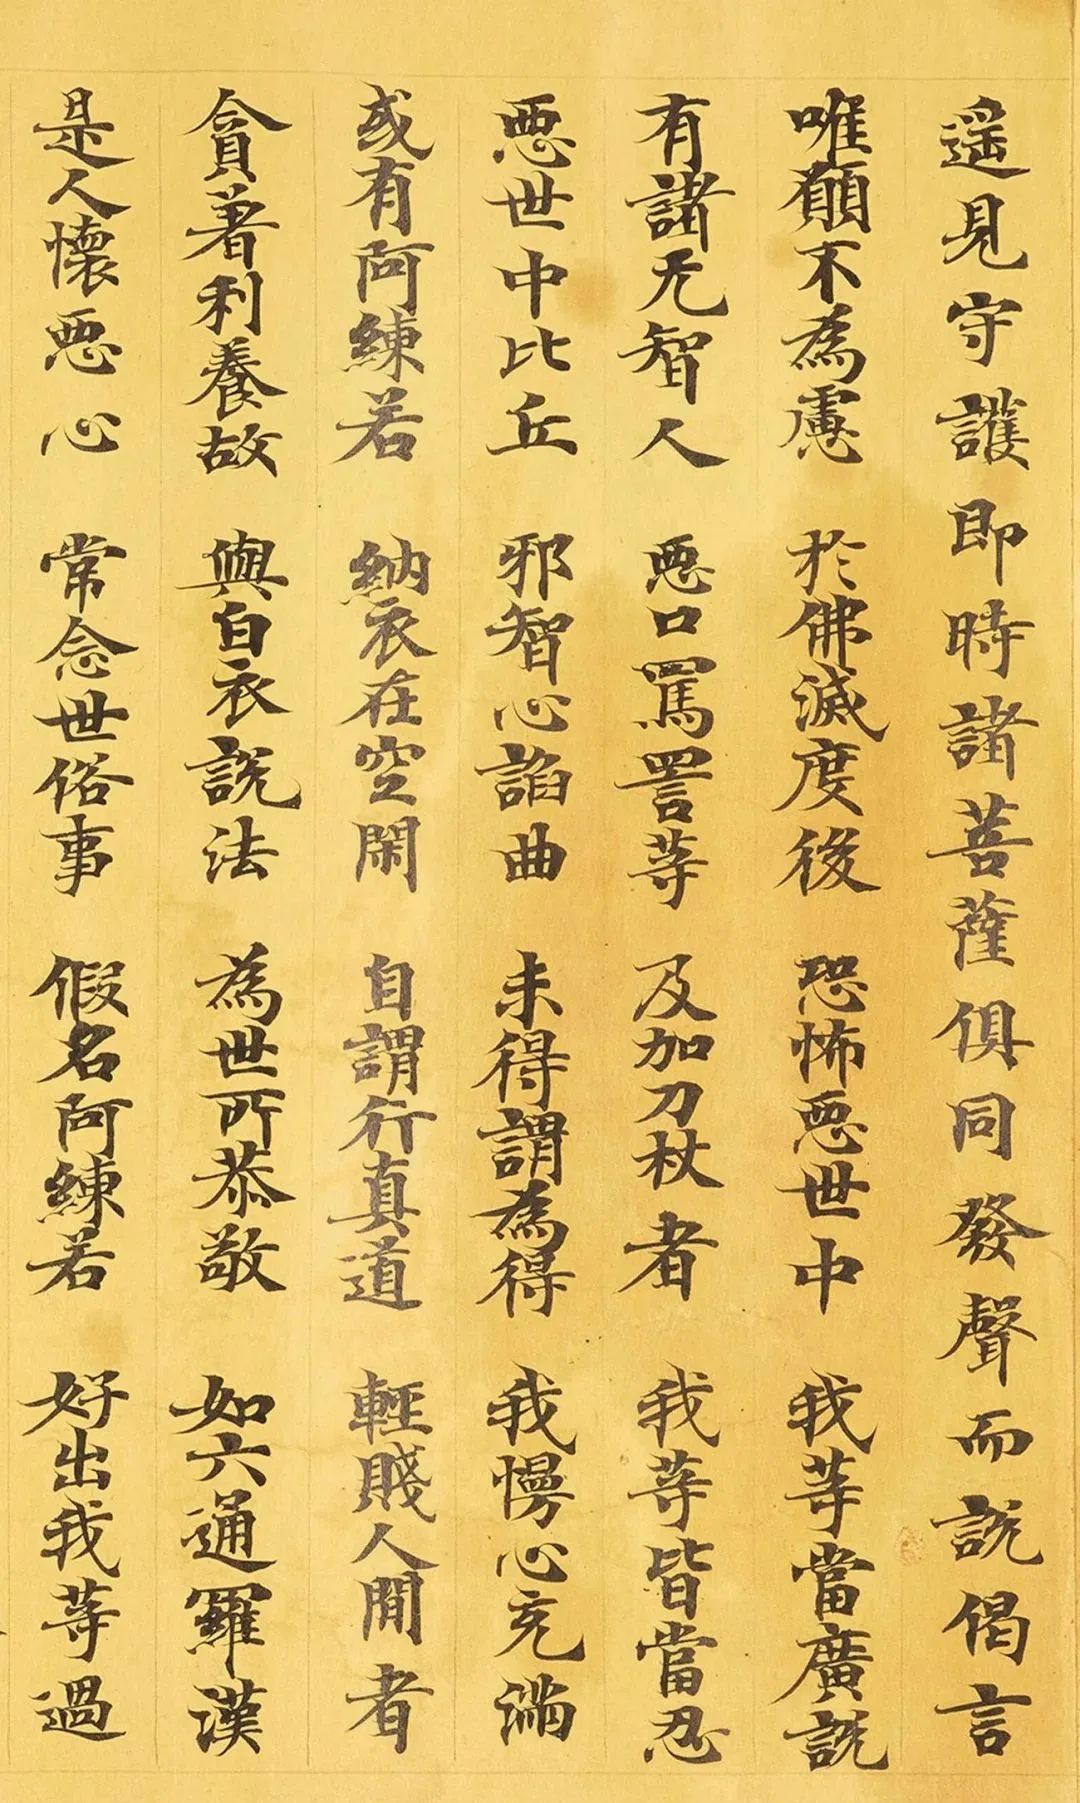 遥見守護即時諸菩薩俱同發聲而說偈言
唯願不為慮 於佛滅度後 恐怖惡世中 我等當廣說
有諸无智人 惡口罵詈等 及加刀杖者 我等皆當忍
惡世中比丘 邪智心諂曲 未得謂為得 我慢心充滿
或有阿練若 納衣在空閑 自謂行真道 輕賤人間者
貪著利養故 與白衣說法 為世所恭敬 如六通羅漢
是人懷惡心 常念世俗事 假名阿練若 好出我等過